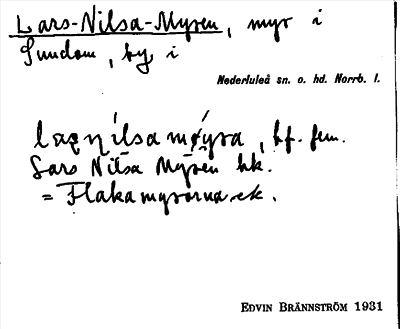 Lars-Nilsa-Myren, myr i
Sundom, by i
Nederluleå sn. o. hd. Norrb. l.
bf. fem.
Lars Nilsa Myren hk.
= Flakamyrarna ek.
EDVIN BRÄNNSTRÖM 1931